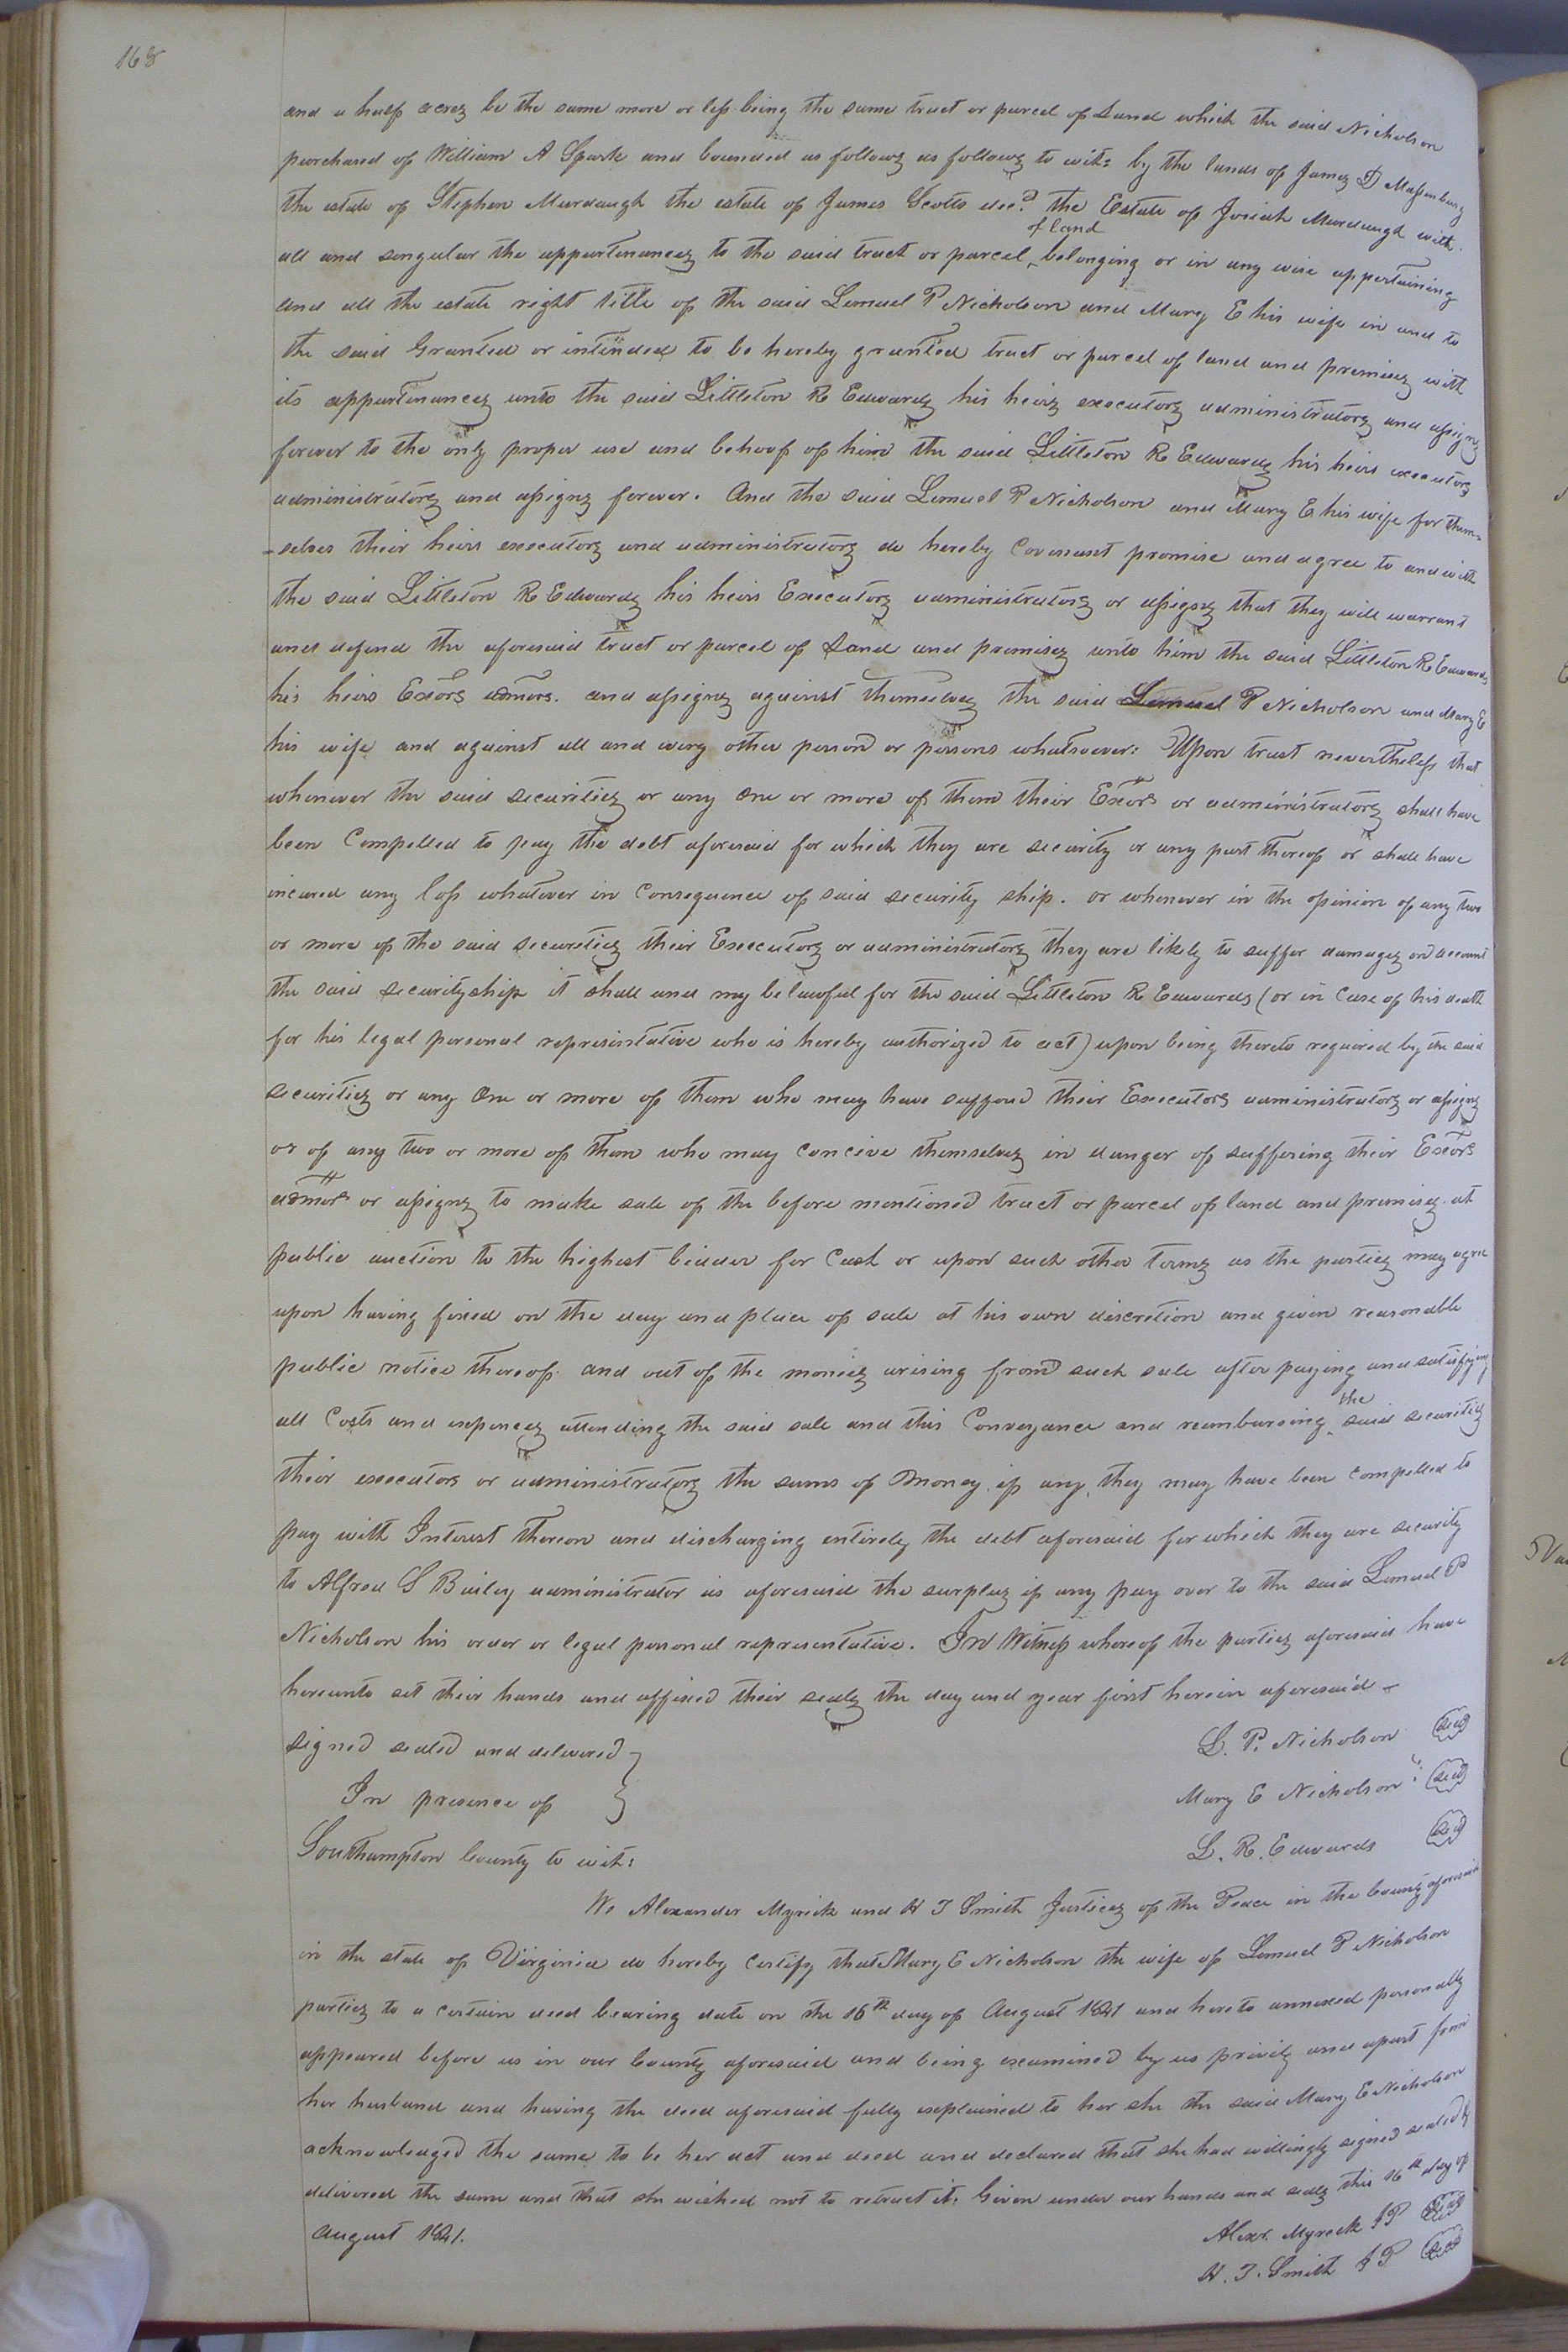 168
and a half acres be the same more or less being the same tract or parcel of Land which the said Nicholson
purchased of William A Spark and bounded as follows as follows to wit: by the lands of James D Massenburg
the estate of Stephen Murdaugh the estate of James Scotts decd. the Estate of Josiah Murdaugh with
all and singular the appurtenances to the said tract or parcel of land belonging or in any wise appertaining
and all the estate right title of the said Lemuel P Nicholson and Mary E his wife in and to
the said Granted or intended to be hereby granted tract or parcel of land and premises with
its appurtenances unto the said Littleton R Edwards his heirs executors administrators and assigns
forever to the only proper use and behoof of him the said Littleton R Edwards his heirs executors
administrators and assigns forever. And the said Lemuel P Nicholson and Mary E his wife for them-
-selves their heirs executors and administrators do hereby Covenant promise and agree to and with
the said Littleton R Edwards his heirs Executors administrators or assigns that they will warrant
and defend the aforesaid tract or parcel of Land and premises unto him the said Littleton R Edwards
his heirs Exors admors. and assigns against themselves the said Lemuel P Nicholson and Mary E
his wife and against all and every other person or persons whatsoever: Upon trust nevertheless that
whenever the said securities or any One or more of them their Exors or administrators shall have
been Compelled to pay the debt aforesaid for which they are security or any part thereof or shall have
incured any loss whatever in Consequence of said security ship. or whenever in the opinion of any two
or more of the said securities their Executors or administrators they are likely to suffer damages on account
the said securityship it shall and may be lawful for the said Littleton R Edwards (or in Case of his death
for his legal personal representative who is hereby authorized to act) upon being thereto required by the said
securities or any One or more of them who may have suffered their Executors administrators or assigns
or of any two or more of them who may conceive themselves in danger of suffering their Exors
admors or assigns to make sale of the before mentioned tract or parcel of land and premises at
public auction to the highest bidder for Cash or upon such other terms as the parties may agree
upon having fixed on the day and place of sale at his own discretion and given reasonable
public notice thereof. and out of the monies arising from such sale after paying and satisfying
all Costs and expences attending the said sale and this Conveyance and reimbursing the said securities
their executors or administrators the sums of Money if any they may have been Compelled to
pay with Interest thereon and discharging entirely the debt aforesaid for which they are security
to Alfred S Bailey administrator as aforesaid the surplus if any pay over to the said Lemuel P
Nicholson his order or legal personal representative. In Witness whereof the parties aforesaid have
hereunto set their hands and affixed their seals the day and year first herein aforesaid -
signed sealed and delivered } L. P. Nicholson (seal)
In presence of } Mary E Nicholson (seal)
Southampton County to wit: L. R. Edwards (seal)
We Alexander Myrick and H T Smith Justices of the Peace in the County aforesaid
in the state of Virginia do hereby Certify that Mary E Nicholson the wife of Lemuel P Nicholson
parties to a certain deed bearing date on the 16th day of August 1841 and hereto annexed personally
appeared before us in our County aforesaid and being examined by us privily and apart from
her husband and having the deed aforesaid fully explained to her she the said Mary E Nicholson
acknowledged the same to be her act and deed and declared that she had willingly signed sealed &
delivered the same and that she wished not to retract it: Given under our hands and seals this 16th day of
August 1841. Alexr. Myrick JP (seal)
H. T. Smith JP (seal)